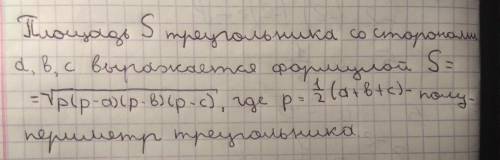 Площадь S треугольника со сторонами
a, b, c выражается формулой S=
=√p(p-a)(p-b)(p-c), где p=½(a+b+c)- полу-
периметр треугольника.